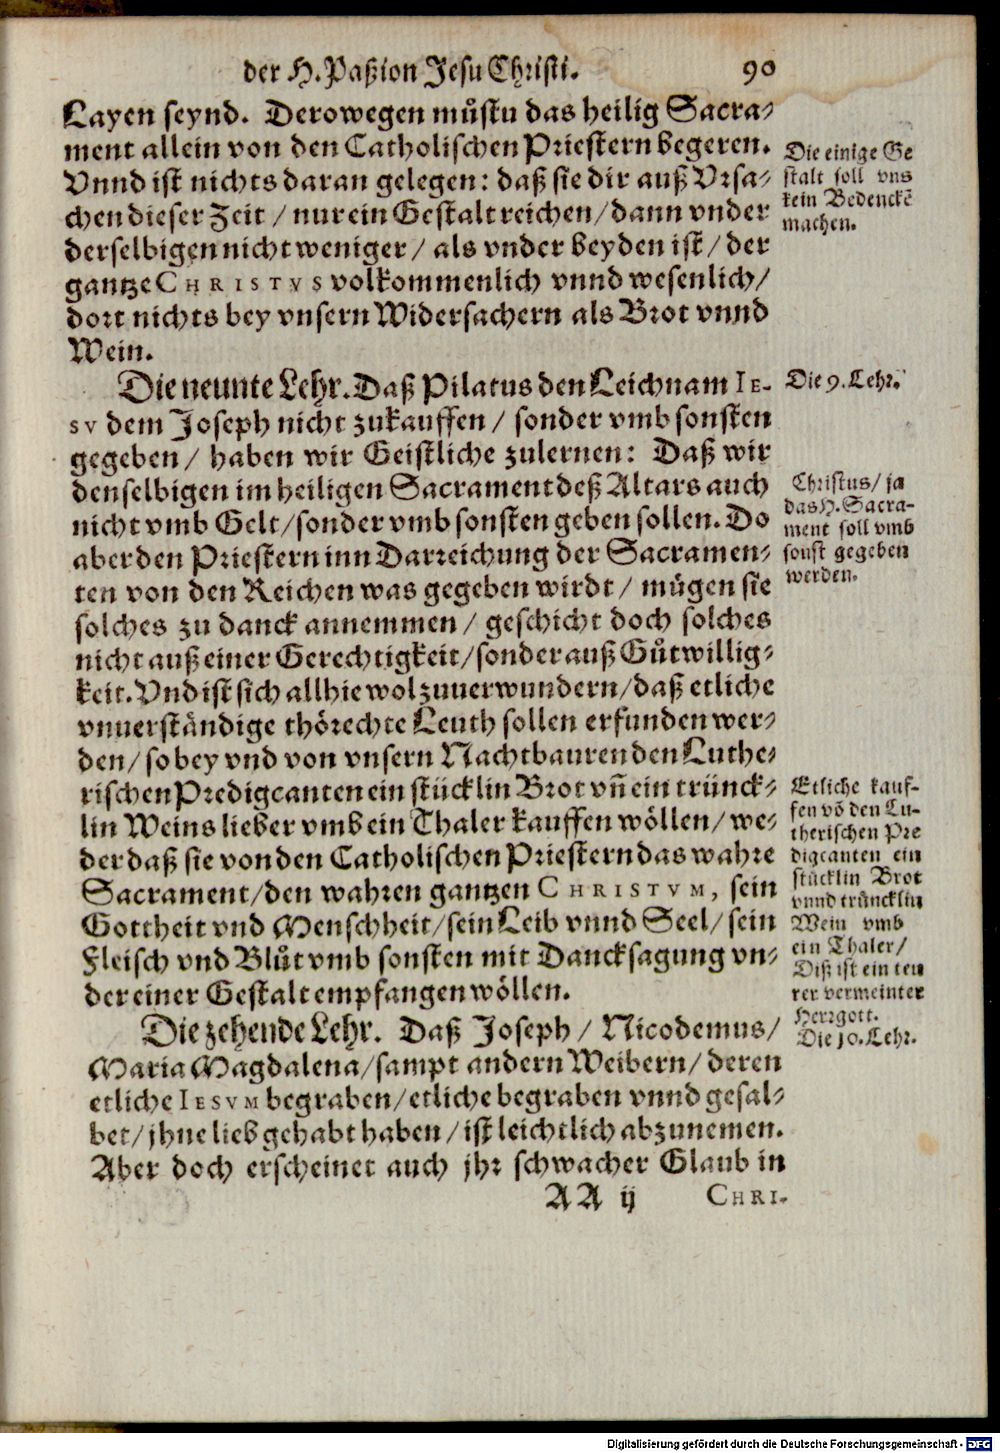 der H. Paßion Jesu Christi. 90
Layen seynd. Derowegen můstu das heilig Sacra-
ment allein von den Catholischen Priestern begeren.
Vnnd ist nichts daran gelegen: daß sie dir auß Vrsa-
chen dieser Zeit / nur ein Gestalt reichen / dann vnder
derselbigen nicht weniger / als vnder beyden ist / der
gantze CHRISTVS volkommenlich vnnd wesenlich /
dort nichts bey vnsern Widersachern als Brot vnnd
Wein.
Die einige Ge
stalt soll vns
kein Bedenckē
machen.
Die neunte Lehr. Daß Pilatus den Leichnam IE-
SV dem Joseph nicht zukauffen / sonder vmb sonsten
gegeben / haben wir Geistliche zulernen: Daß wir
denselbigen im heiligen Sacrament deß Altars auch
nicht vmb Gelt / sonder vmb sonsten geben sollen. Do
aber den Priestern inn Darreichung der Sacramen-
ten von den Reichen was gegeben wirdt / mügen sie
solches zu danck annemmen / geschicht doch solches
nicht auß einer Gerechtigkeit / sonder auß Gůtwillig-
keit. Vnd ist sich allhie wol zuuerwundern / daß etliche
vnuerständige thörechte Leuth sollen erfunden wer-
den / so bey vnd von vnsern Nachtbauren den Luthe-
rischen Predigcanten ein stücklin Brot vn̄ ein trünck-
lin Weins lieber vmb ein Thaler kauffen wöllen / we-
der daß sie von den Catholischen Priestern das wahre
Sacrament / den wahren gantzen CHRISTVM, sein
Gottheit vnd Menschheit / sein Leib vnnd Seel / sein
Fleisch vnd Blůt vmb sonsten mit Dancksagung vn-
der einer Gestalt empfangen wöllen.
Die 9. Lehr.
Christus / ja
das H. Sacra-
ment soll vmb
sonst gegeben
werden.
Etliche kauf-
fen vō den Lu-
therischen Pre
digcanten ein
stücklin Brot
vnnd trüncklin
Wein vmb
ein Thaler /
Diß ist ein teu
rer vermeinter
Herrgott.
Die zehende Lehr. Daß Joseph / Nicodemus /
Maria Magdalena / sampt andern Weibern / deren
etliche IESVM begraben / etliche begraben vnnd gesal-
bet / jhne lieb gehabt haben / ist leichtlich abzunemen.
Aber doch erscheinet auch jhr schwacher Glaub in
Die 10. Lehr.
AA ij CHRI-
Digitalisierung gefördert durch die Deutsche Forschungsgemeinschaft - DFG